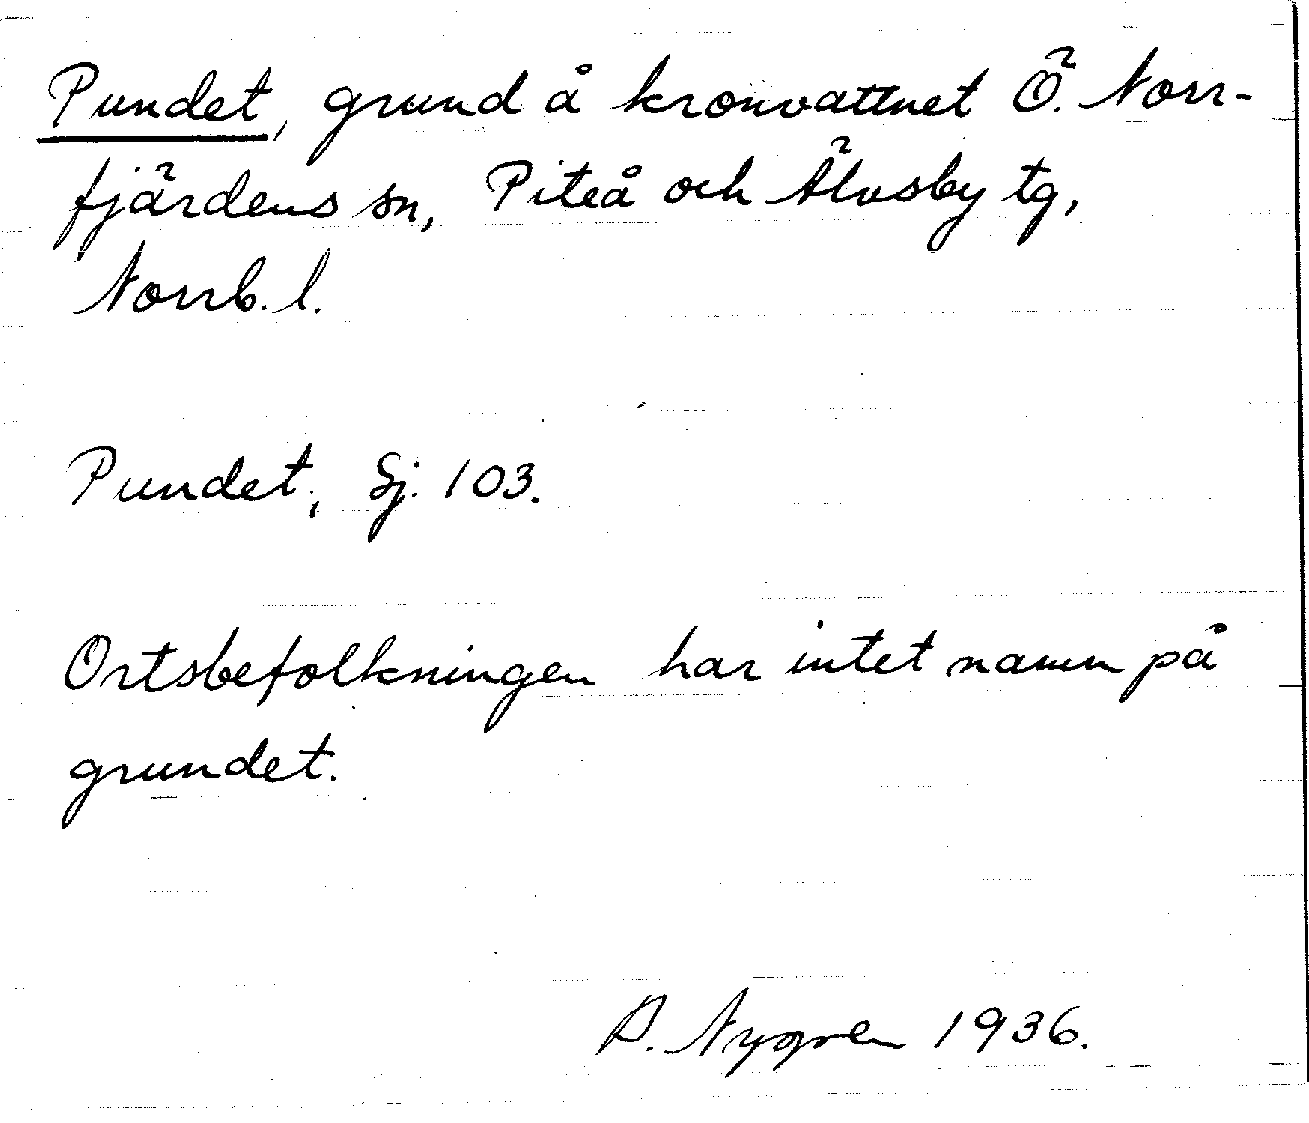 Pundet, grund å kronvattnet Ö. Norr-
fjärdens sn, Piteå och Älvsby tg,
Norrb. l.
Pundet, Sj. 103.
Ortsbefolkningen har intet namn på
grundet.
A. Nygren 1936.